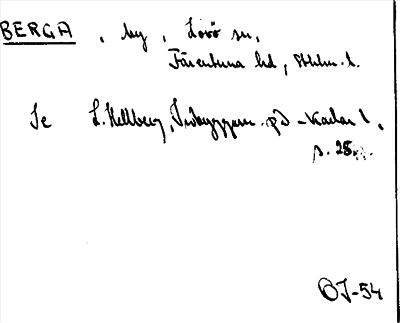 BERGA, by, Lovö sn,
Färentuna hd, Sthlm. l.
Se L. Hellberg, Inbyggarn. på -karlar 1,
s. 25
OJ-54